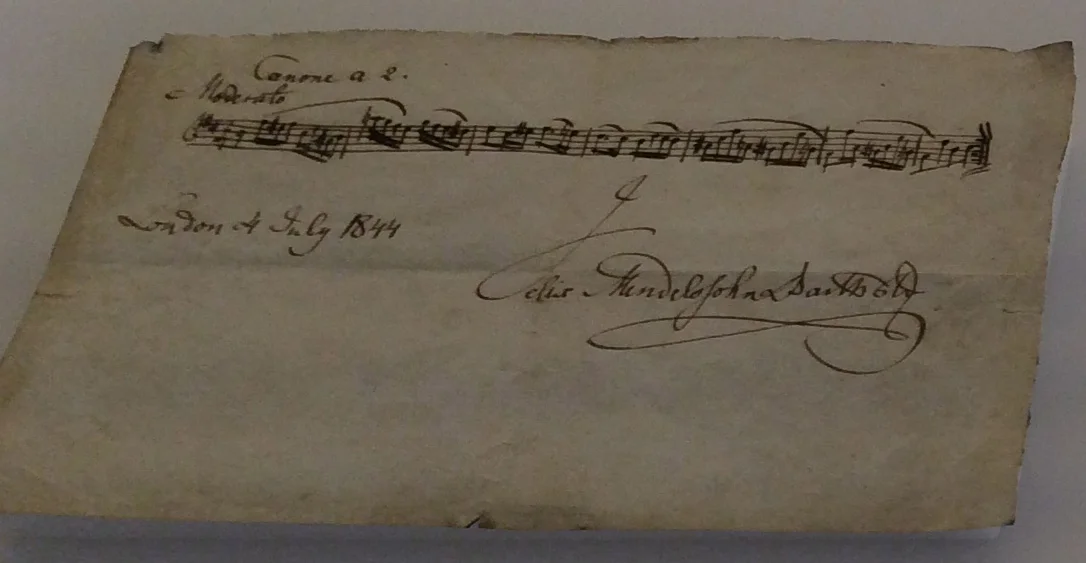 Canone a 2.
Moderato
London 4 July 1844
Felix Mendelssohn Bartholdy